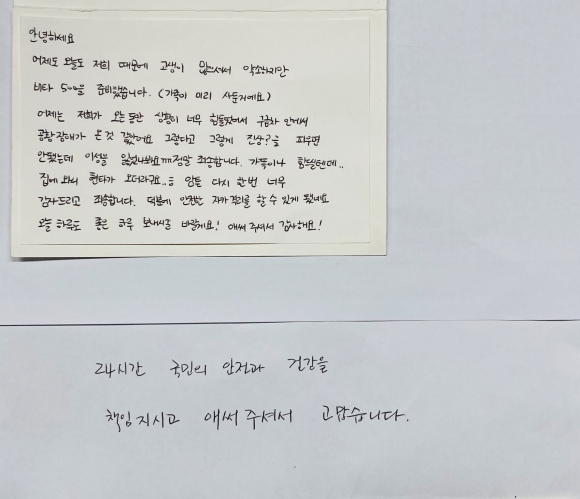 안녕하세요
어제도 오늘도 저희 때문에 고생이 많으셔서 약소하지만
비타 500을 준비했습니다. (가족이 미리 사둔거에요)
어제는 저희가 오는동안 상황이 너무 힘들었어서 구급차 안에서
공황장애가 온 것 같았어요 그렇다고 그렇게 진상?을 피우면
안됐는데 이성을 잃었나봐요ㅠㅠ정말 죄송합니다. 가뜩이나 힘들텐데..
집에 와니 현타가 오더라구요.. 암튼 다시 한번 너무
감사드리고 죄송합니다. 덕분에 안전한 자가격리를 할 수 있게 됐네요
오늘 하루도 좋은 하루 보내시길 바랄게요! 애써 주셔서 감사해요!
24시간 국민의 안전과 건강을
책임지시고 애써 주셔서 고맙습니다.